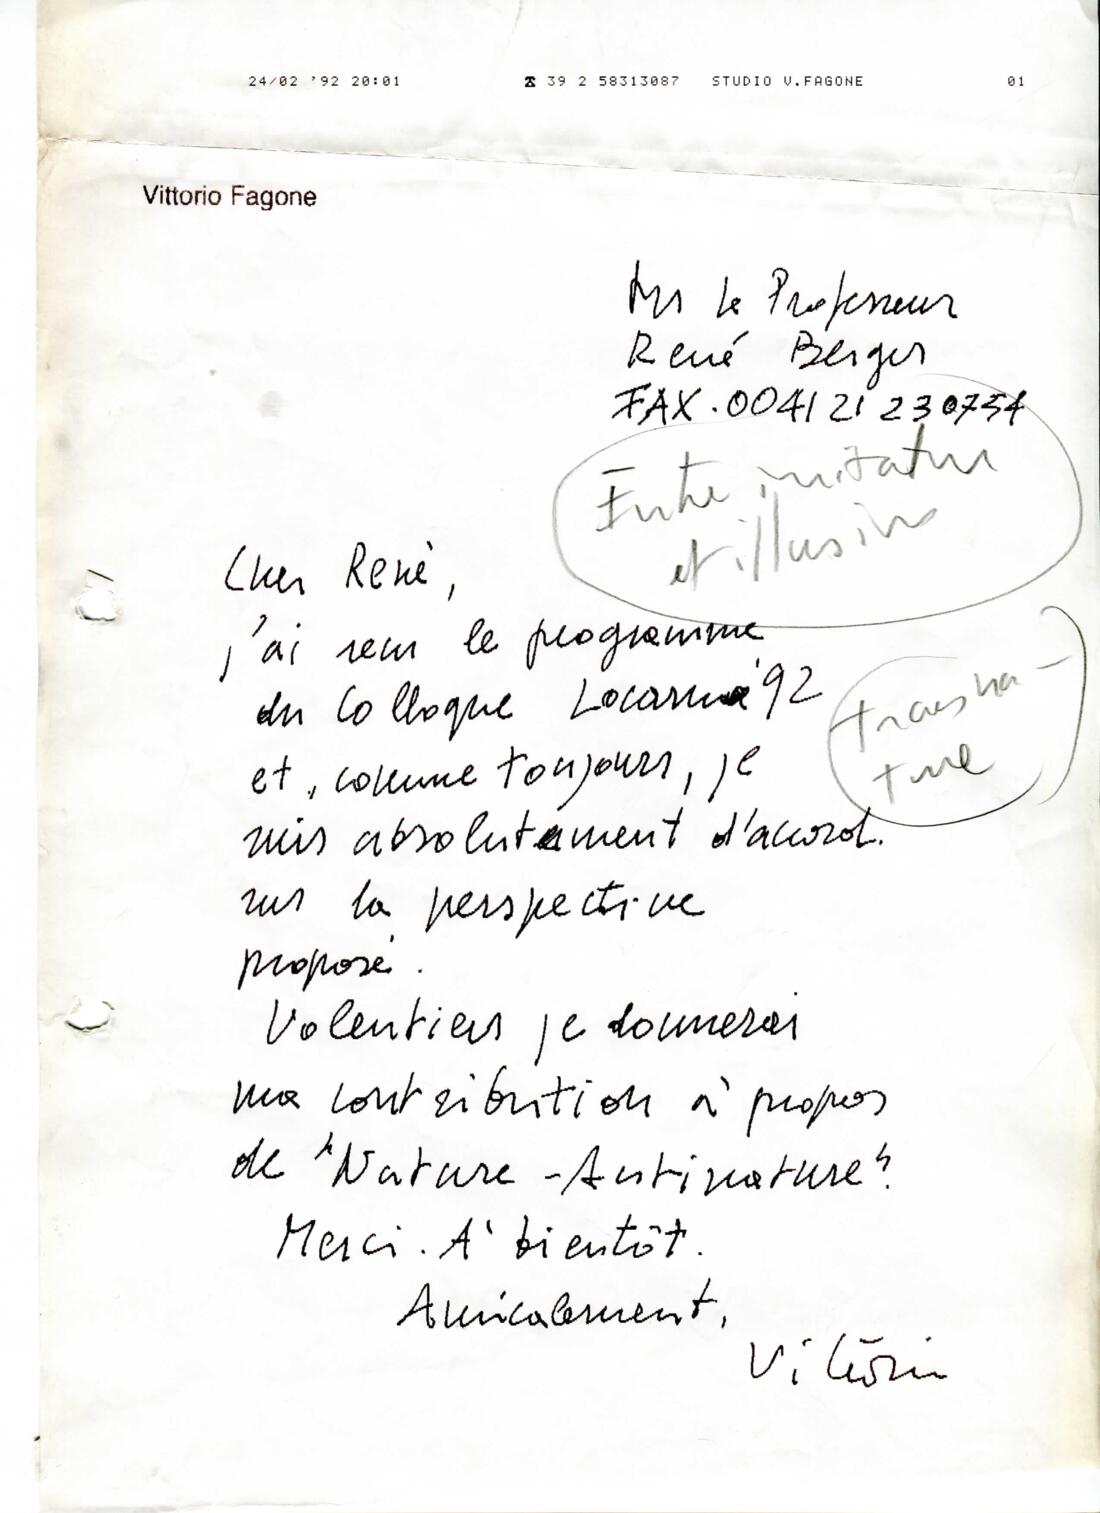 24/02 '92 20:01 ☎ 39 2 58313087 STUDIO V.FAGONE 01
Vittorio Fagone
Mrs le Professeur
René Berger
FAX.0041 21 230754
Entre imitation
et illusion
Cher René,
j'ai reçu le programme
du Colloque Locarno '92
transna-
ture
et, comme toujours, je
suis absolutement d'accord.
sur la perspective
proposé.
Volentiers je donnerai
ma contribution à propos
de "Nature-Antinature".
Merci. A' bientôt.
Amicalement,
Vittorio